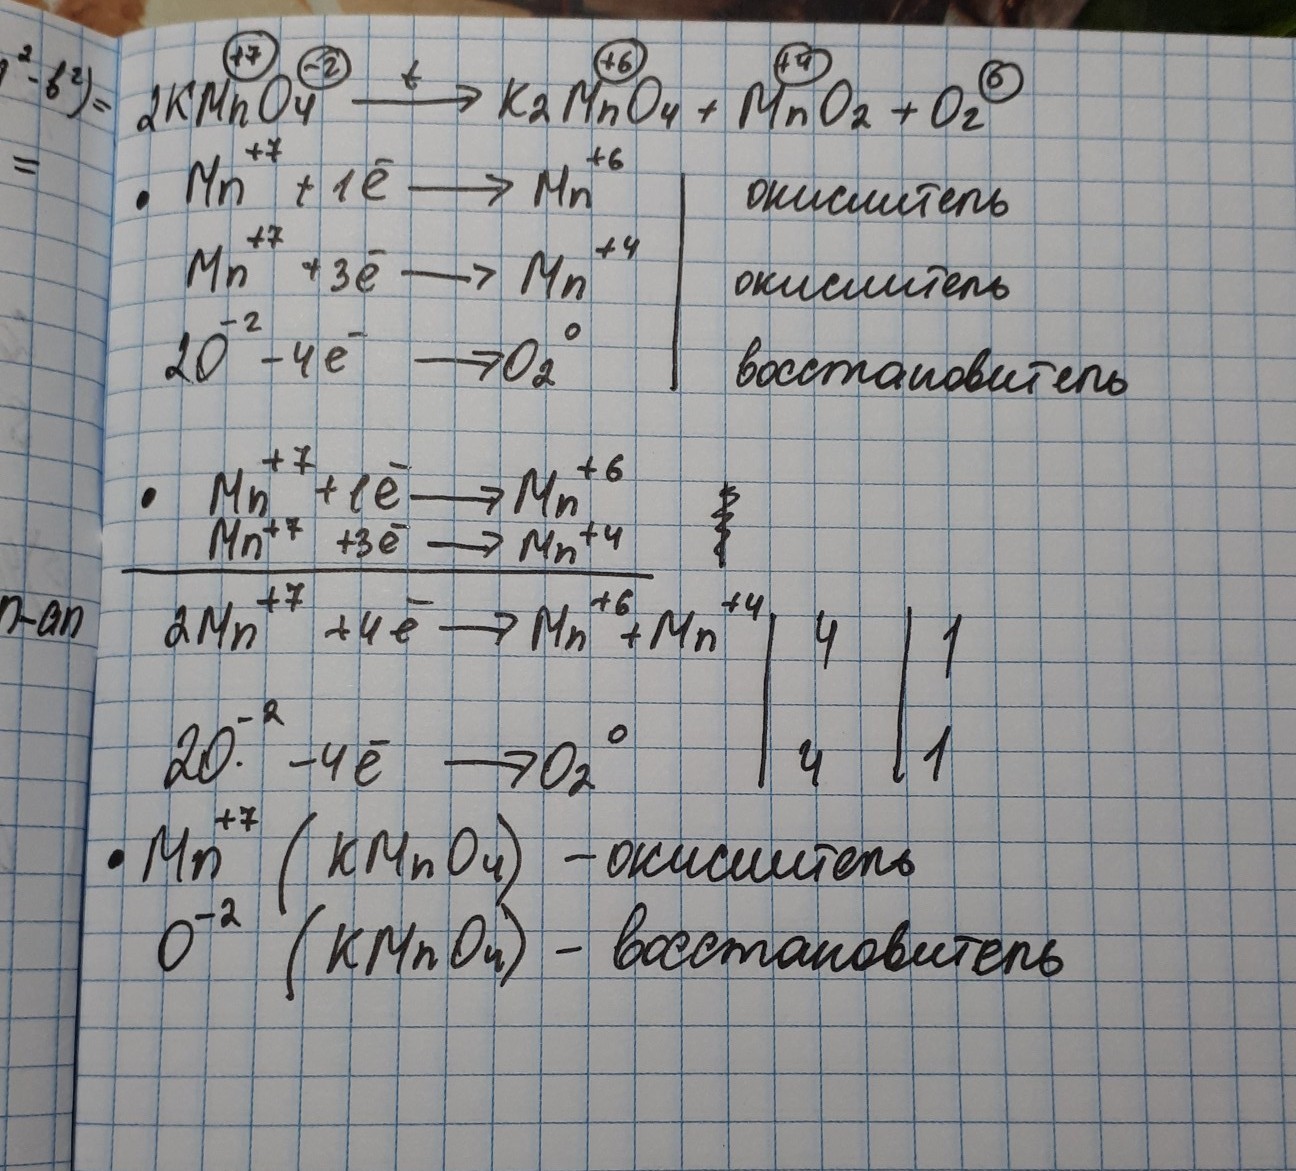 2KMn⁺⁷O4⁻² t→ K2Mn⁺⁶O4 + Mn⁺⁴O2 + O2⁰
• Mn⁺⁷ + 1ē → Mn⁺⁶ | окислитель
Mn⁺⁷ +3ē → Mn⁺⁴ | окислитель
2O⁻² -4e⁻ → O2⁰ | восстановитель
• Mn⁺⁷ +1ē → Mn⁺⁶
Mn⁺⁷ +3ē → Mn⁺⁴
2Mn⁺⁷ +4ē → Mn⁺⁶ + Mn⁺⁴ | 4 | 1
2O⁻² -4ē → O2⁰ | 4 | 1
• Mn⁺⁷ (KMnO4) - окислитель
O⁻² (KMnO4) - восстановитель